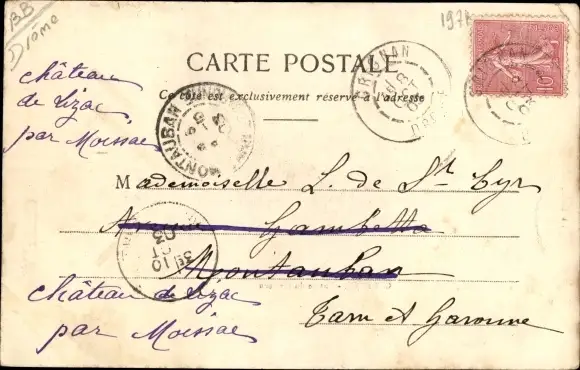 BB
Drôme
197A
CARTE POSTALE
Ce côté est exclusivement réservé à l'adresse
GRIGNAN
MONTAUBAN
château
de Lizac
par Moissac
Mademoiselle L. de St Cyr
Avenue Gambetta
Montauban
château de Lizac
par Moissac
Tarn et Garonne